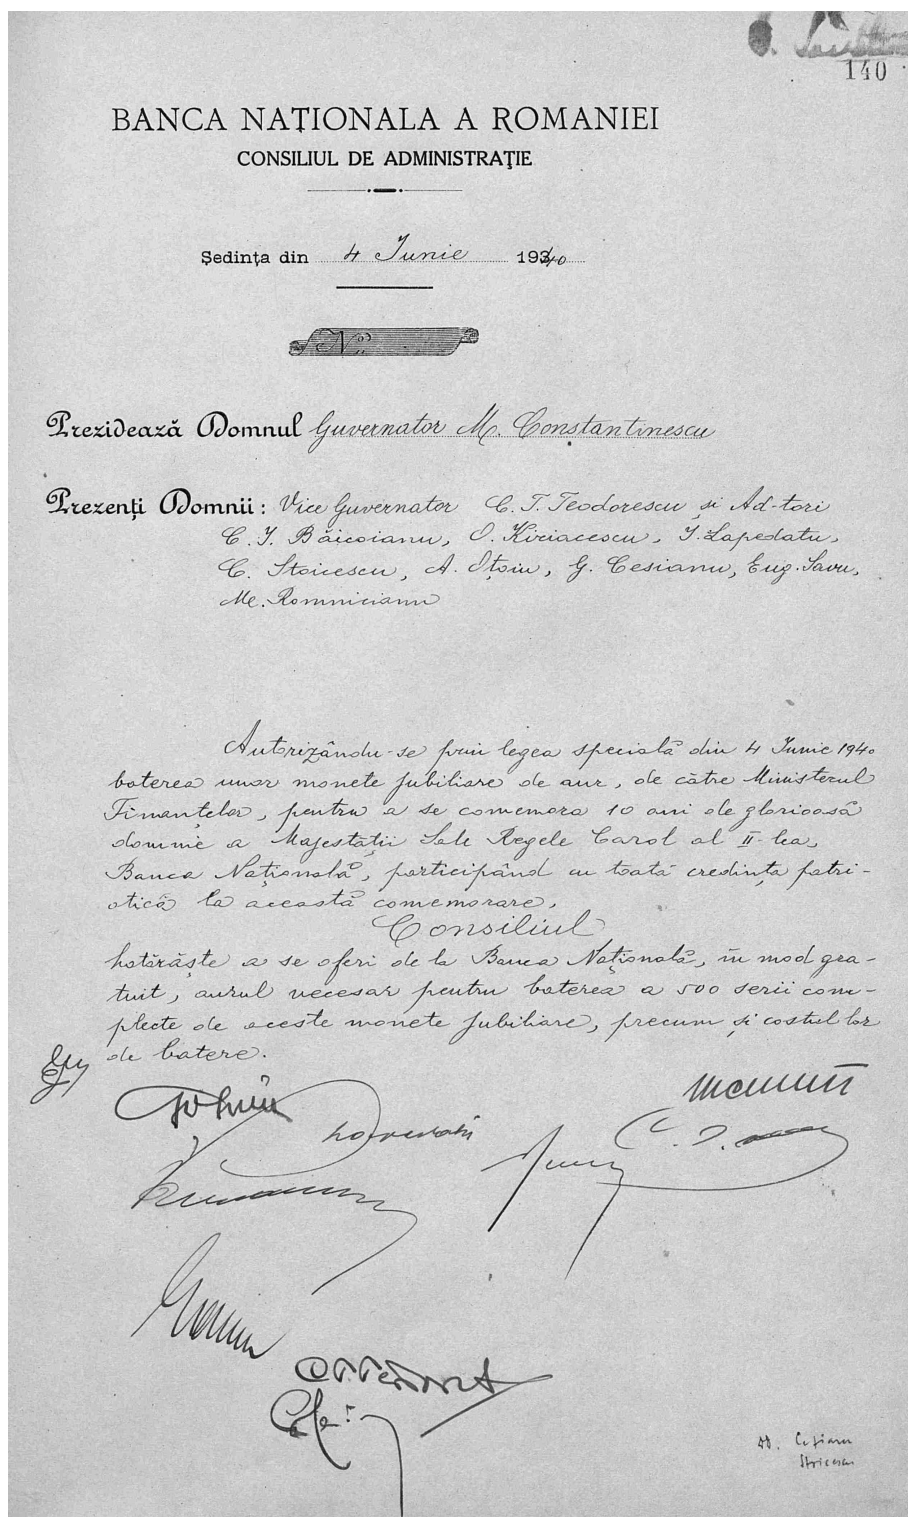 140
BANCA NAȚIONALA A ROMANIEI
CONSILIUL DE ADMINISTRAȚIE
Ședința din 4 Iunie 1940
No.
Prezidează Domnul Guvernator M. Constantinescu
Prezenți Domnii: Vice Guvernator C. T. Teodorescu și Ad-tori
C. I. Băicoianu, O. Kiriacescu, I. Lapedatu,
C. Stoicescu, A. Oțoiu, G. Cesianu, Eug. Savu,
M. Romniceanu
Autorizându-se prin legea specială din 4 Iunie 1940
baterea unor monete jubiliare de aur, de către Ministerul
Finanțelor, pentru a se comemora 10 ani de glorioasă
domnie a Majestății Sale Regele Carol al II-lea,
Banca Națională, participând cu toată credința patri-
otică la această comemorare,
Consiliul
hotărăște a se oferi de la Banca Națională, în mod gra-
tuit, aurul necesar pentru baterea a 500 serii com-
plecte de aceste monete jubiliare, precum și costul lor
de batere.